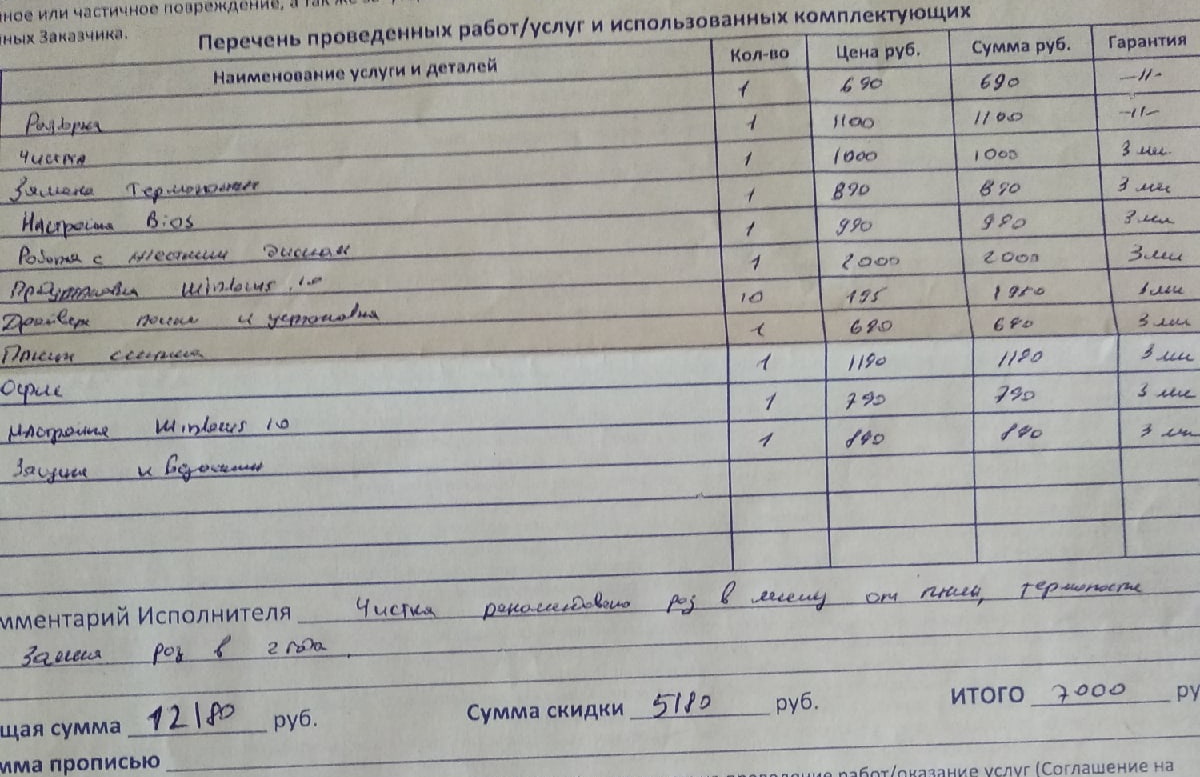 ное или частичное повреждение, а так же
ных Заказчика.
Перечень проведенных работ/услуг и использованных комплектующих
Наименование услуги и деталей Кол-во Цена руб. Сумма руб. Гарантия
Разборка 1 690 690 -"-
Чистка 1 1100 1100 -"-
Замена Термопасты 1 1000 1000 3 мес
Настройка Bios 1 890 890 3 мес
Работа с жестким диском 1 990 990 3 мес
Windows 10 1 2000 2000 3 мес
поиск и установка 10 195 1950
1 690 690 3 мес
Офис 1 1190 1190 3 мес
Настройка Windows 10 1 790 790 3 мес
Защита и 1 890 890 3 мес
мментарий Исполнителя Чистка рекомендовано раз в от пыли, термопаста
раз в 2 года.
щая сумма 12180 руб. Сумма скидки 5180 руб. ИТОГО 7000 ру
мма прописью
работ/оказание услуг (Соглашение на